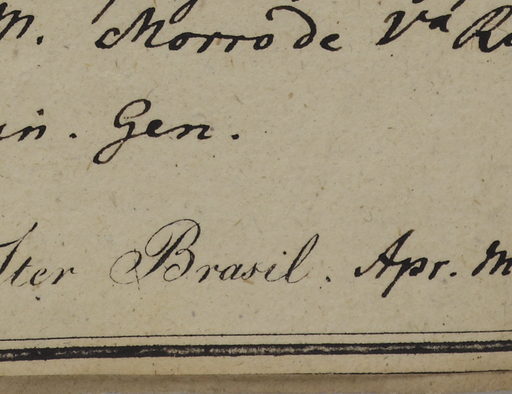 M. Morro de Va R
in. Gen.
Iter Brasil. Apr. M